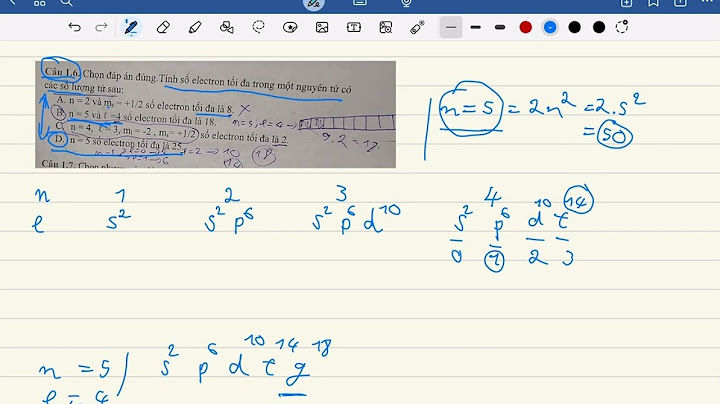 Câu 1.6. Chọn đáp án đúng. Tính số electron tối đa trong một nguyên tử có
các số lượng tử sau:
A. n = 2 và mₛ = +1/2 số electron tối đa là 8. X
B. n = 5 và ℓ =4 số electron tối đa là 18. n=5, ℓ=4 →
C. n=4, ℓ = 3, mₗ = -2 , mₛ = +1/2) số electron tối đa là 2
9.2=18
D. n = 5 số electron tối đa là 25
ℓ=2 → 10
18
Câu 1.7. Chọn
n=5 = 2n² = 2.5²
= 50
n 1 2 3 4
ℓ s² s² p⁶ s² p⁶ d¹⁰ s² p⁶ d¹⁰ f 14
0 1 2 3
n = 5 / s² p⁶ d¹⁰ f¹⁴ g¹⁸
ℓ = 4